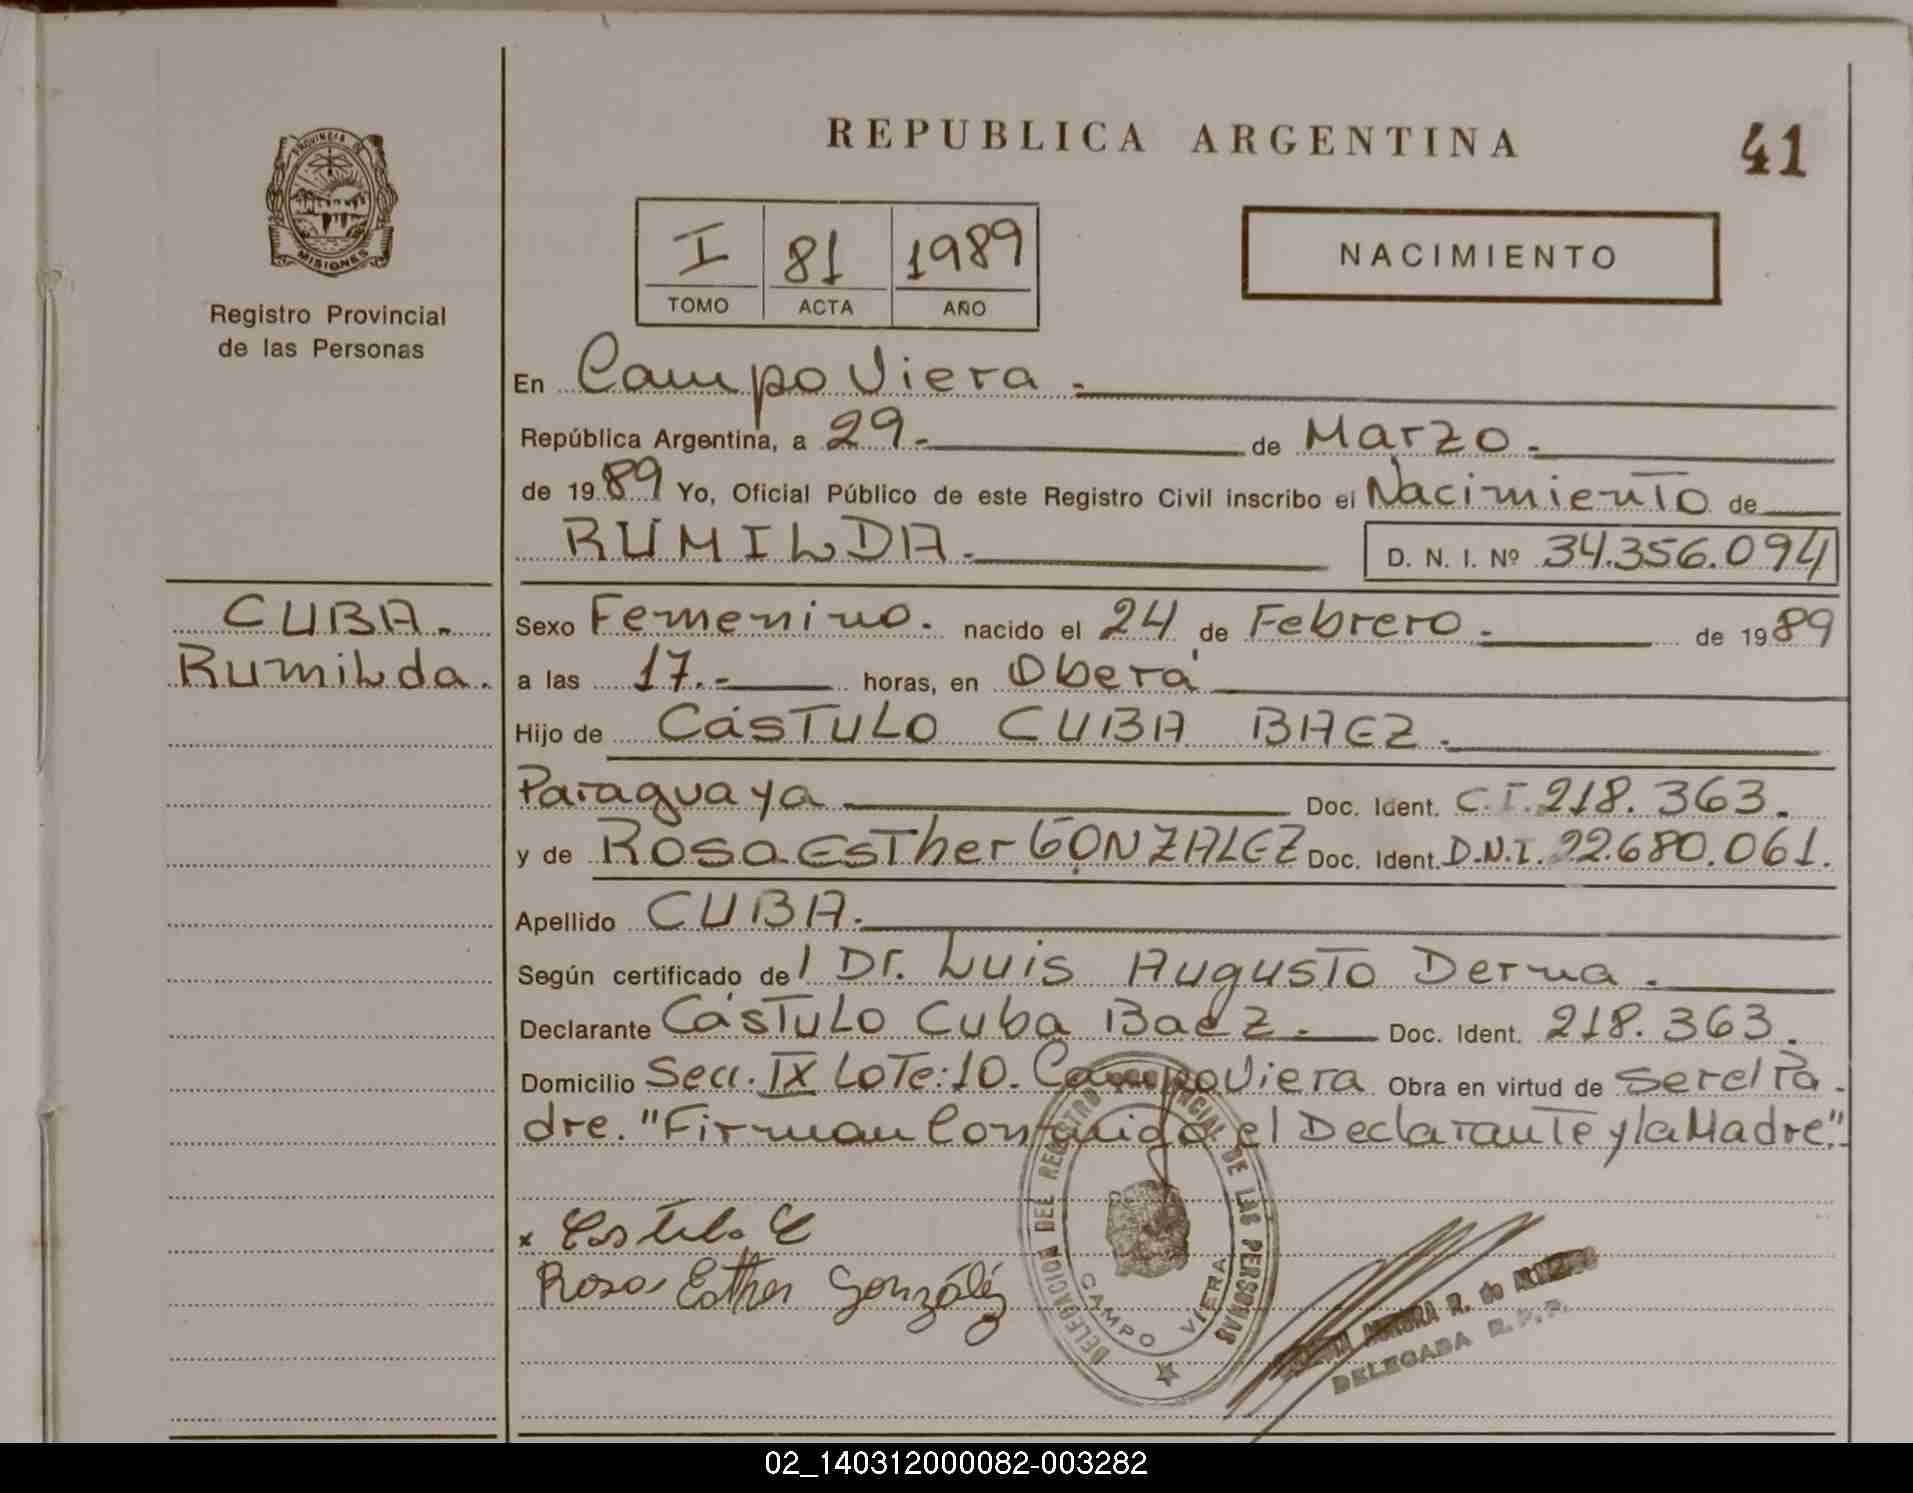 REPUBLICA ARGENTINA
41
PROVINCIA DE
MISIONES
Registro Provincial
de las Personas
I 81 1989
TOMO ACTA AÑO
NACIMIENTO
En Campo Viera.-
República Argentina, a 29.- de Marzo.-
de 1989 Yo, Oficial Público de este Registro Civil inscribo el Nacimiento de
RUMILDA.- D. N. I. Nº 34.356.094
CUBA.
Rumilda.
Sexo Femenino. nacido el 24 de Febrero.- de 1989
a las 17.- horas, en Oberá
Hijo de CásTULO CUBA BAEZ.-
Paraguaya Doc. Ident. C.I. 218.363.
y de Rosa EsTher GONZALEZ Doc. Ident. D.N.I. 22.680.061.
Apellido CUBA.
Según certificado del Dr. Luis AugusTo Derna.
Declarante CásTuLo Cuba Baez.- Doc. Ident. 218.363.
Domicilio Secc. IX LoTe: 10. Campo Viera Obra en virtud de ser el Pa-
dre. "Firman Conmigo el DeclaranTe y la Madre".
x Castulo C
Rosa Esther González
DELEGACION DEL REGISTRO PROVINCIAL DE LAS PERSONAS
CAMPO VIERA
AURORA R. de
DELEGADA R.P.P.
02_140312000082-003282